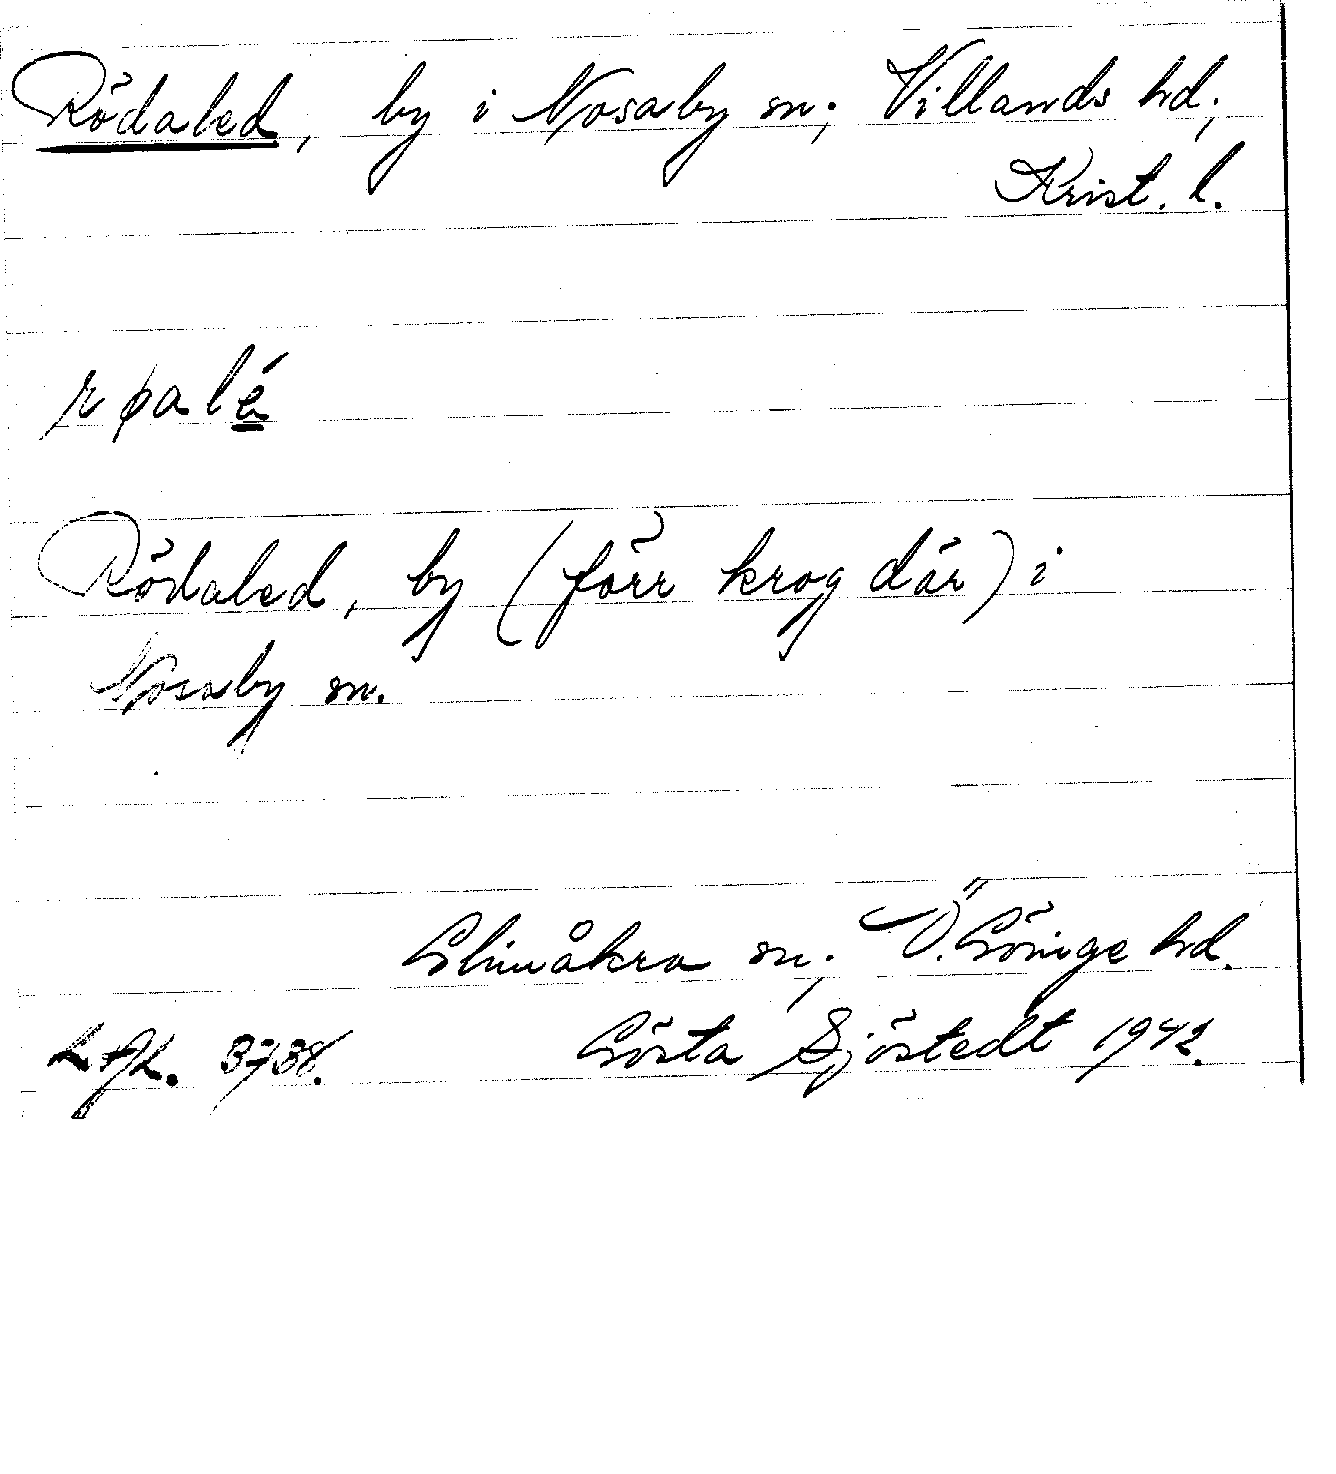 Rödaled, by i Nosaby sn; Villands hd;
Krist. l.
røalé
Rödaled, by (förr krog där) i
Nosaby sn.
Glimåkra sn; Ö. Göinge hd.
3738. Gösta Sjöstedt 1942.